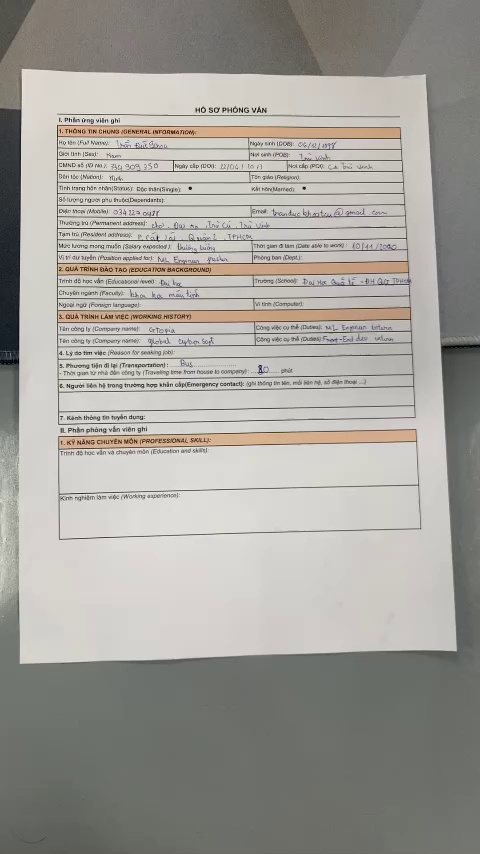 HỒ SƠ PHỎNG VẤN
I. Phần ứng viên ghi
1. THÔNG TIN CHUNG (GENERAL INFORMATION):
Họ tên (Full Name): Trần Đức Ngày sinh (DOB): 04/12/1998
Giới tính (Sex): Nam Nơi sinh (POB): Trà Vinh
CMND số (ID No.): Ngày cấp (DOI): Nơi cấp (POI): CA Trà Vinh
Dân tộc (Nation): Kinh Tôn giáo (Religion):
Tình trạng hôn nhân(Status): Độc thân(Single): Kết hôn(Married):
Số lượng người phụ thuộc(Dependants):
Điện thoại (Mobile): Email: @gmail.com
Thường trú (Permanent address): Chợ, Đại An, Trà Cú, Trà Vinh
Tạm trú (Resident address): P. Cát Lái, Quận 2, TPHCM
Mức lương mong muốn (Salary expected): Thời gian đi làm (Date able to work): 10/11/2020
Vị trí dự tuyển (Position applied for): ML Engineer Phòng ban (Dept.):
2. QUÁ TRÌNH ĐÀO TẠO (EDUCATION BACKGROUND)
Trình độ học vấn (Educational level): Đại học Trường (School): Đại Học Quốc Tế - ĐH QG TPHCM
Chuyên ngành (Faculty): khoa học máy tính
Ngoại ngữ (Foreign language): Vi tính (Computer):
3. QUÁ TRÌNH LÀM VIỆC (WORKING HISTORY)
Tên công ty (Company name): Công việc cụ thể (Duties): ML Engineer intern
Tên công ty (Company name): Global CyberSoft Công việc cụ thể (Duties): Front-End dev intern
4. Lý do tìm việc (Reason for seeking job):
5. Phương tiện đi lại (Transportation): Bus
- Thời gian từ nhà đến công ty (Traveling time from house to company): phút
6. Người liên hệ trong trường hợp khẩn cấp(Emergency contact): (ghi thông tin tên, mối liên hệ, số điện thoại ...)
7. Kênh thông tin tuyển dụng:
II. Phần phỏng vấn viên ghi
1. KỸ NĂNG CHUYÊN MÔN (PROFESSIONAL SKILL):
Trình độ học vấn và chuyên môn (Education and skills):
Kinh nghiệm làm việc (Working experience):